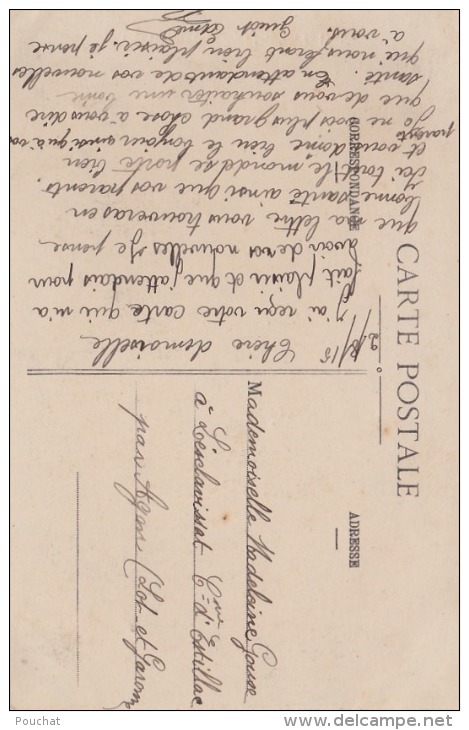 CARTE POSTALE
CORRESPONDANCE
ADRESSE
2/8/15
Chère demoiselle
J'ai reçu votre carte qui m'a
fait plaisir et que j'attendais pour
avoir de vos nouvelles. Je pense
que sa lettre vous trouveras en
bonne santé ainsi que vos parents.
Ici tout le monde se porte bien
et vous donne bien le bonjour ainsi qu'à vos
parents
Je ne vois plus grand chose à vous dire
que de vous souhaiter une bonne
santé. En attendants de vos nouvelles
que nous feront bien plaisir. je pense
à vous.
Mademoiselle Madeleine Gousse
à Lesclavissat Cne d'Estillac
par Agen (Lot-et-Garonne
Pouchat
www.delcampe.net